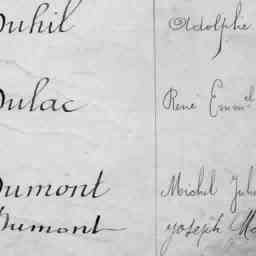 Duhil Adolphe
Dulac René Emm.el
Dumont Michel Jul
Dumont Joseph Ma